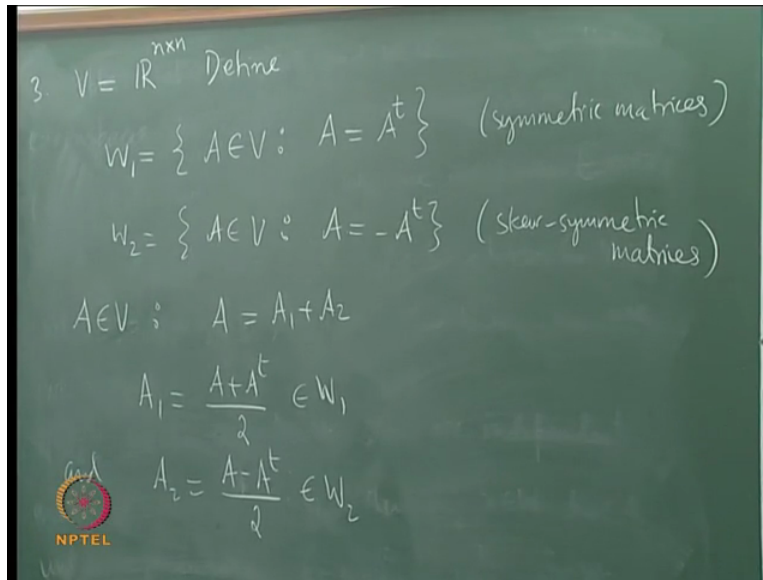 3. V = ℝ^{n×n} Define
W₁ = { A ∈ V : A = Aᵗ } (symmetric matrices)
W₂ = { A ∈ V : A = -Aᵗ } (skew-symmetric matrices)
A ∈ V : A = A₁ + A₂
A₁ = (A + Aᵗ)/2 ∈ W₁
and A₂ = (A - Aᵗ)/2 ∈ W₂
NPTEL